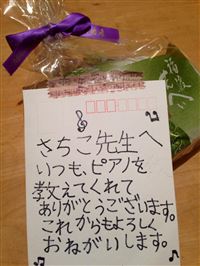 さちこ先生へ
いつも、ピアノを
教えてくれて
ありがとうございます。
これからもよろしく
おねがいします。